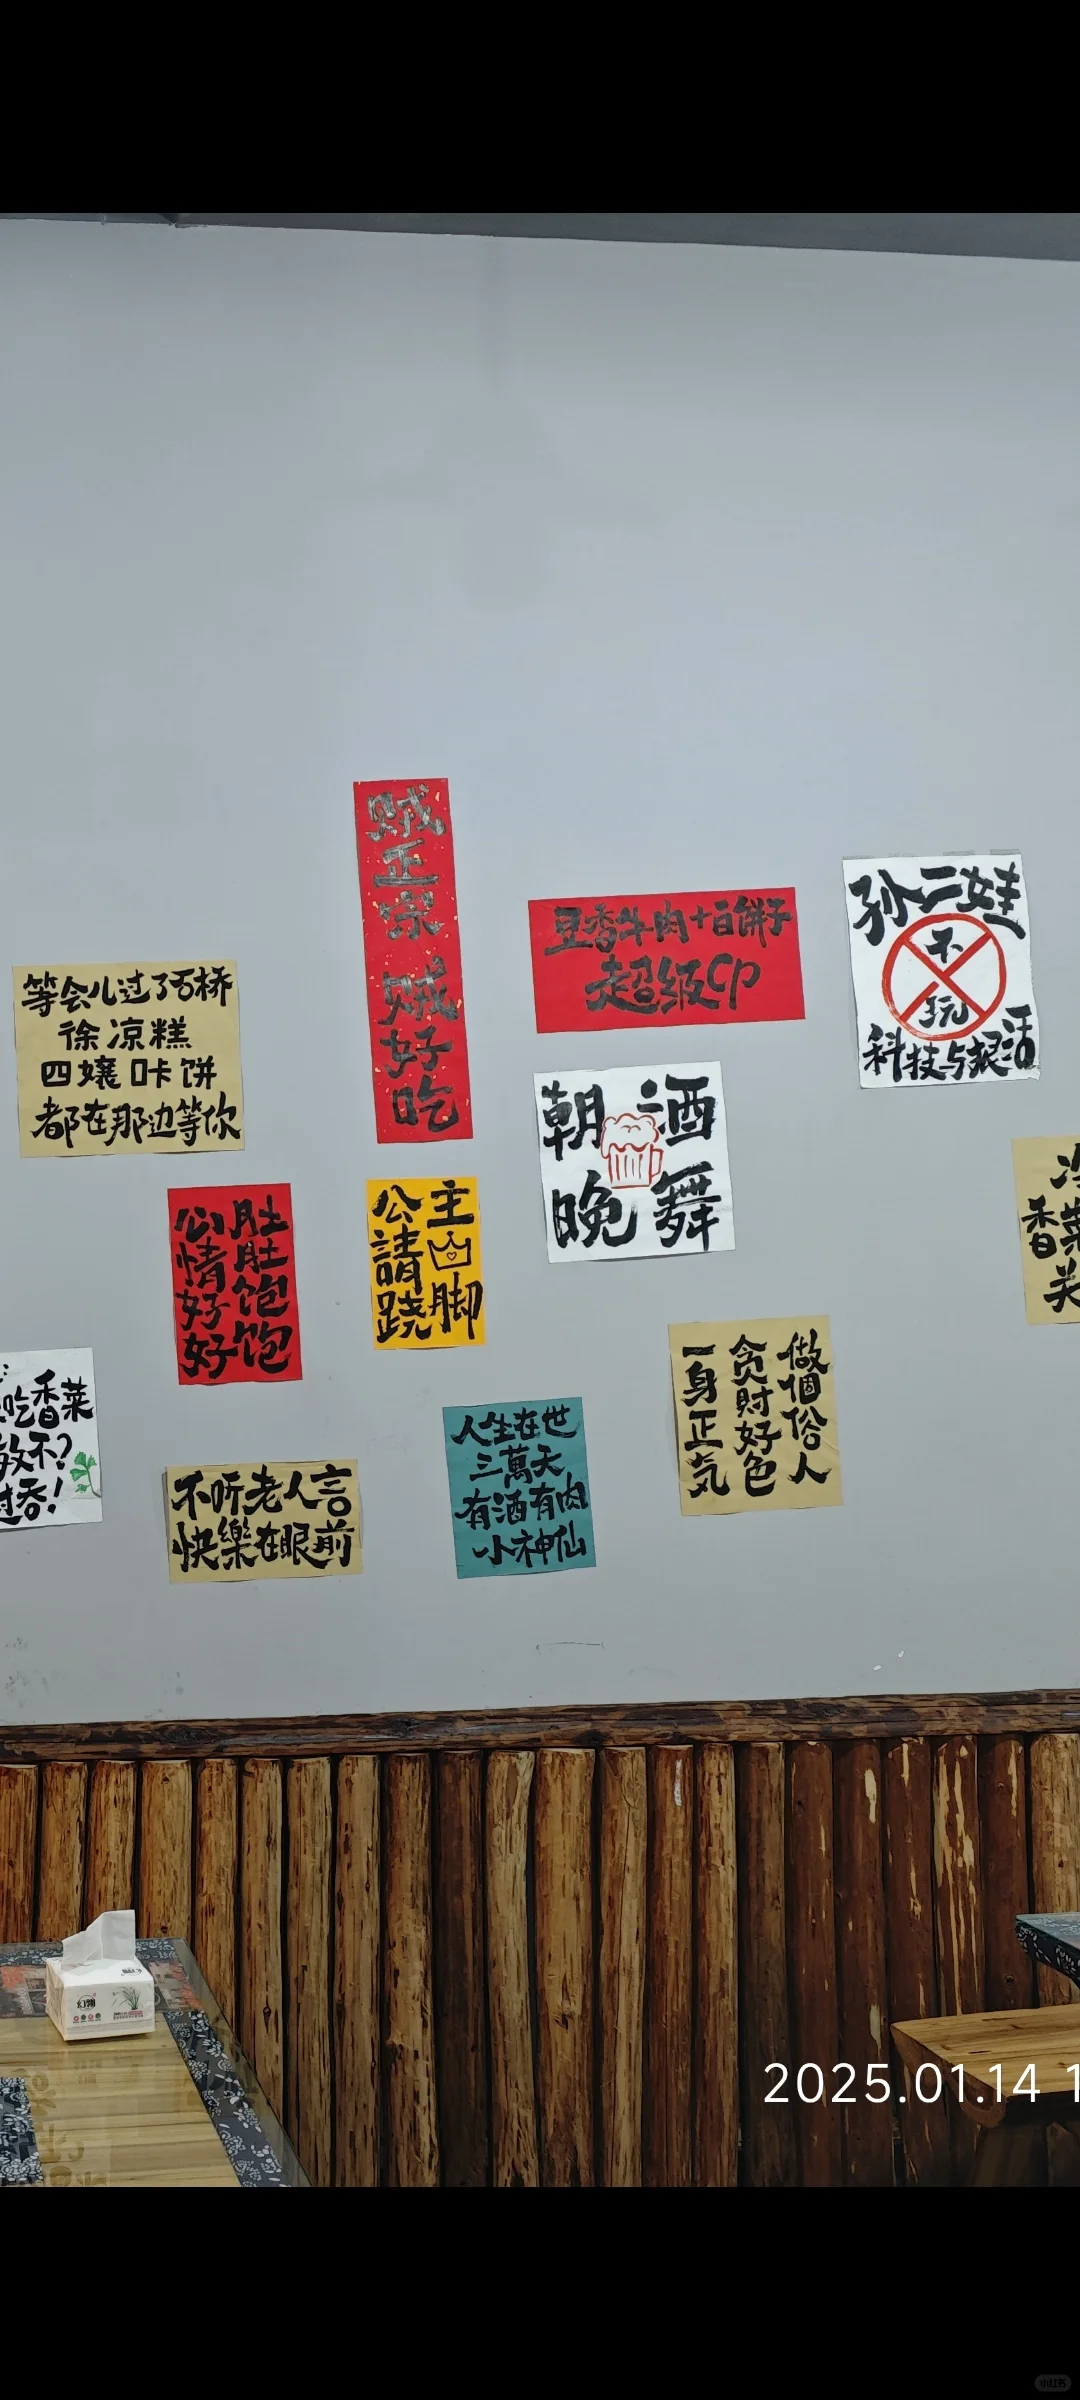 贼正宗 贼好吃
豆香牛肉+白饼子
超级CP
孙二娃
不玩
科技与狠活
等会儿过了石桥
徐凉糕
四孃咔饼
都在那边等你
朝酒
晚舞
肚肚饱饱
公情好好
公主
請
跷脚
香菜
吃香菜
不?
吞!
做個俗人
贪財好色
一身正气
人生在世
三萬天
有酒有肉
小神仙
不听老人言
快樂在眼前
2025.01.14 1
小红书